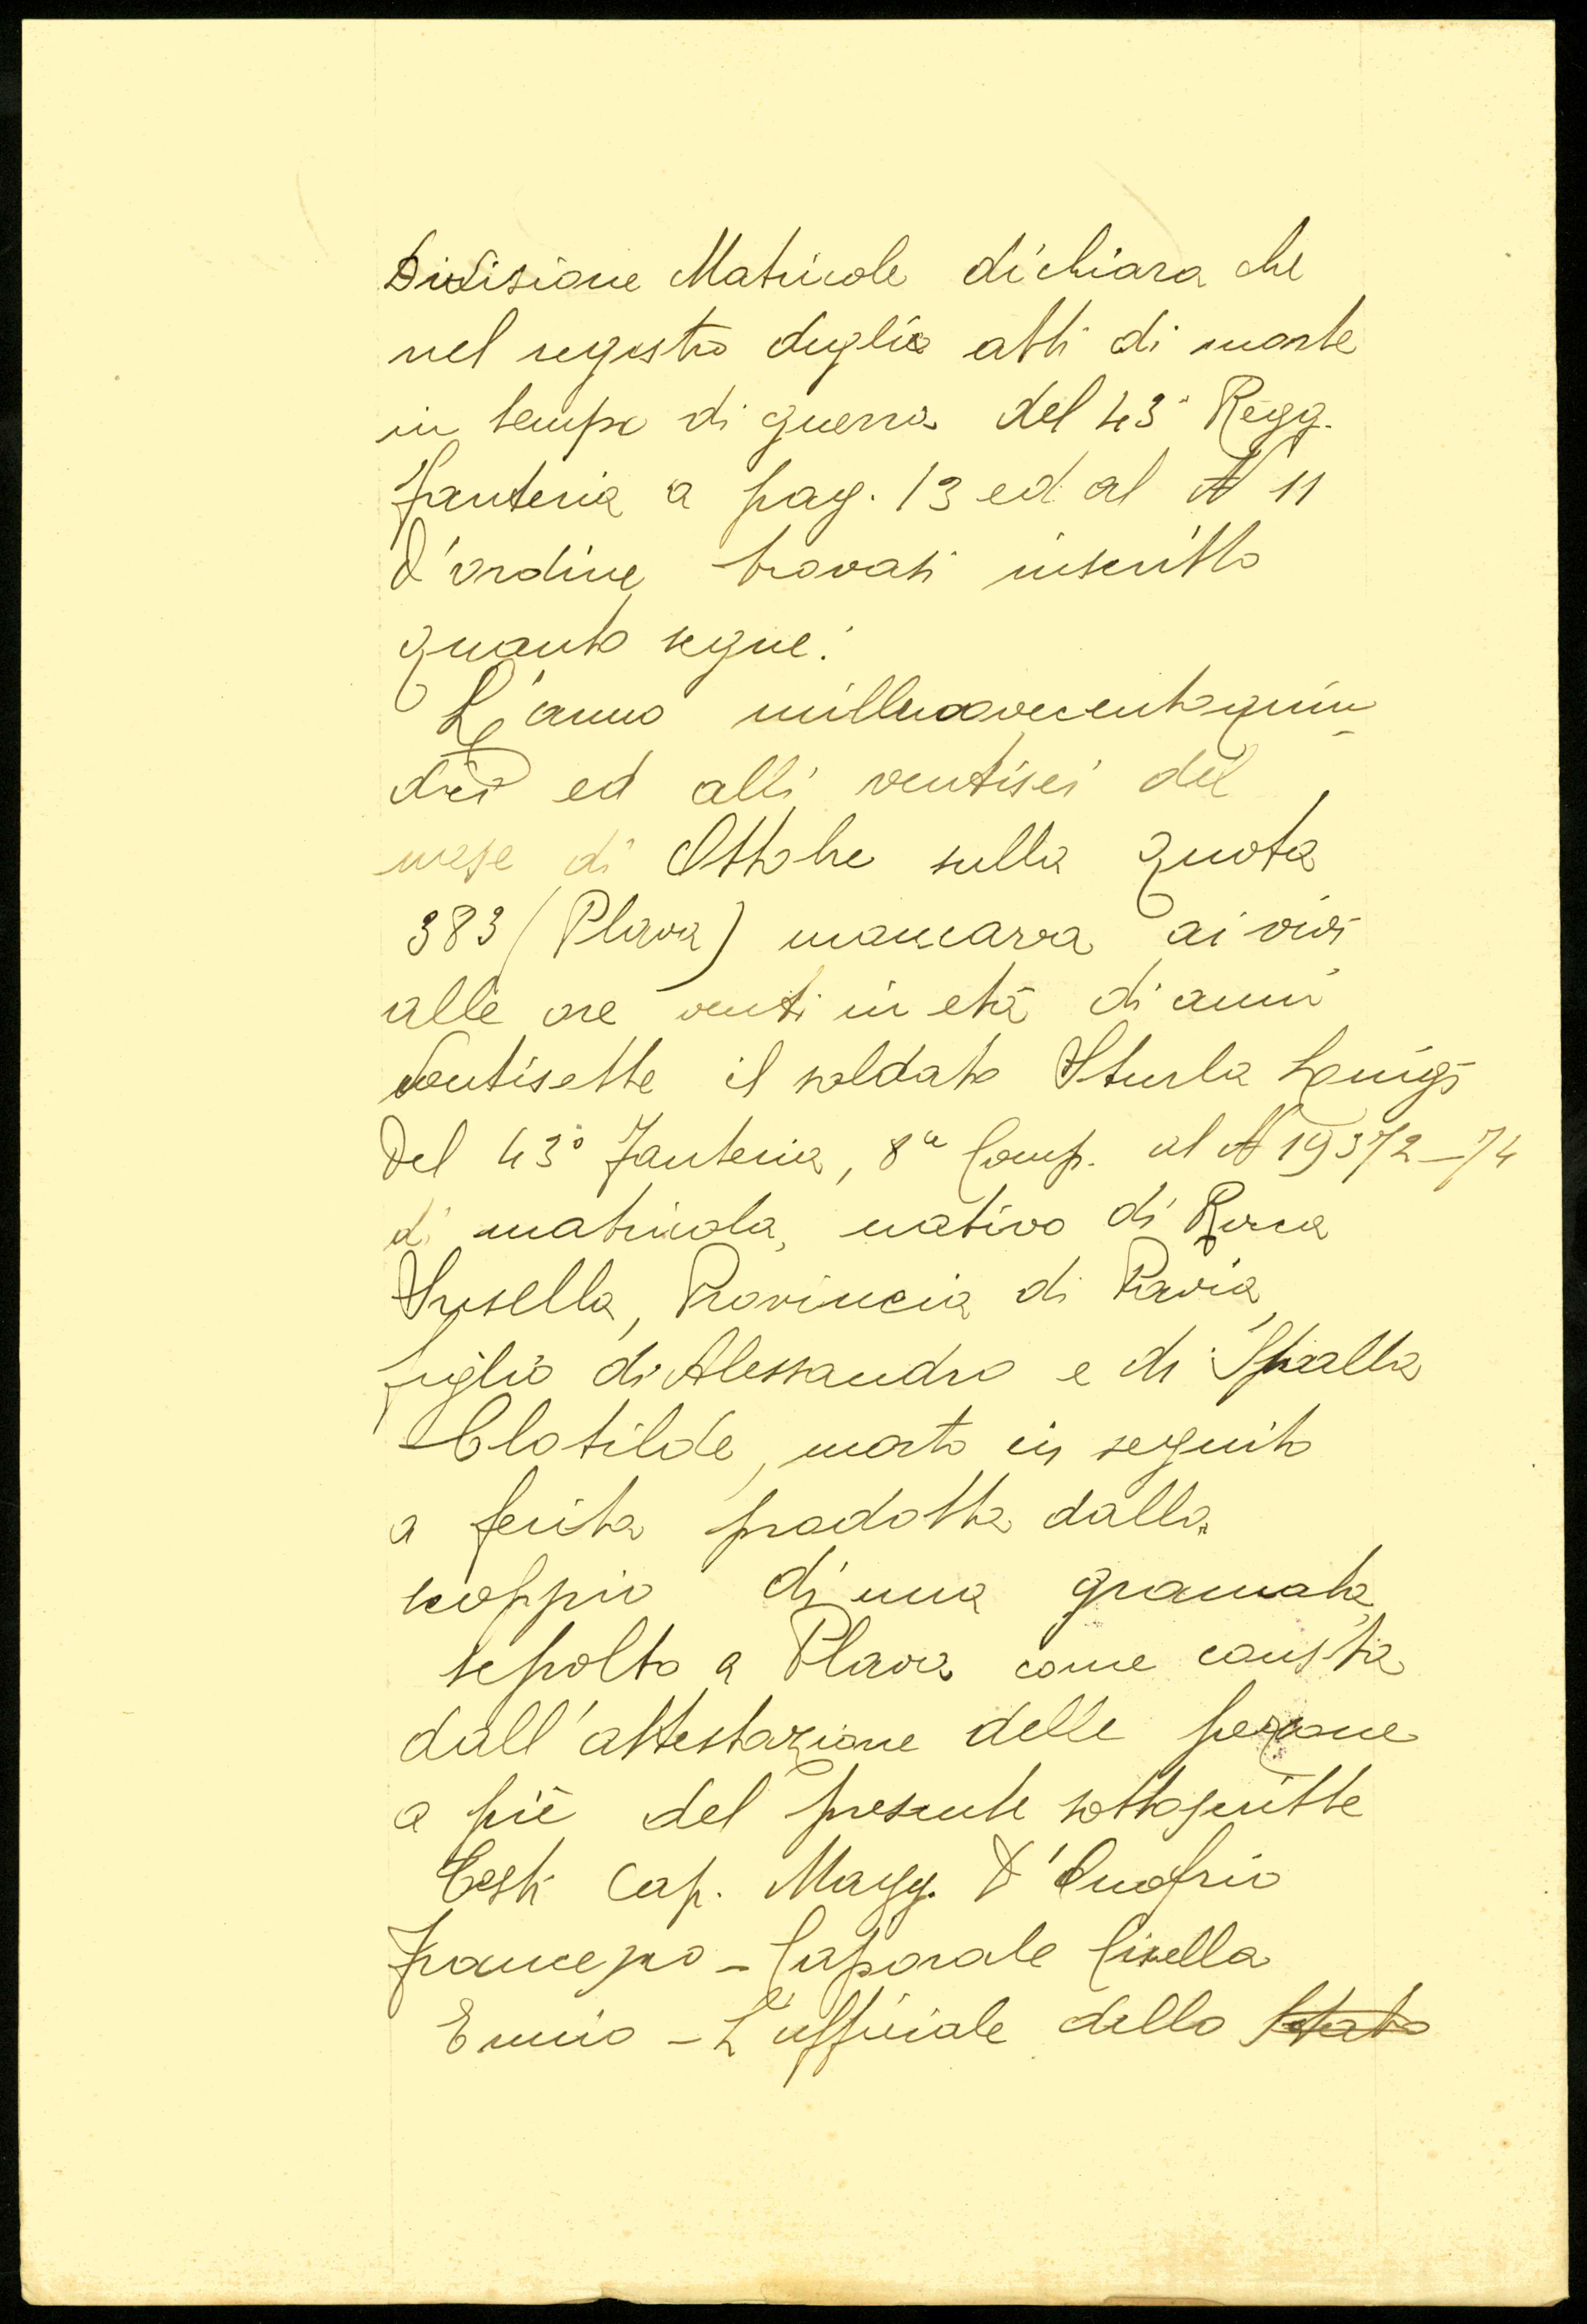 Divisione Matricole dichiara che
nel registro degli atti di morte
in tempo di guerra del 43° Regg.
fanteria a pag. 13 ed al N 11
d'ordine trovasi inscritto
quanto segue:
L'anno millenovecentoquin
dici ed alli ventisei del
mese di Ottobre sulla quota
383 (Plava) mancava ai vivi
alle ore venti in età di anni
ventisette il soldato Sturla Luigi
del 43° Fanteria, 8a Comp. al N 19372-74
di matricola, nativo di Rocca
Susella, Provincia di Pavia,
figlio di Alessandro e di Spialla
Clotilde, morto in seguito
a ferita prodotta dallo
scoppio di una granata,
sepolto a Plava come consta
dall'attestazione delle persone
a piè del presente sottoscritte
Testi Cap. Magg. D'Onofrio
Francesco - Caporale Cisella
Ennio - L'ufficiale dello Stato